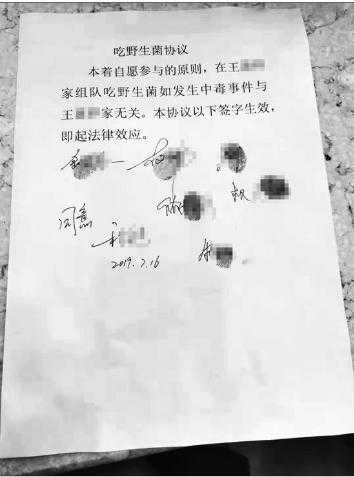 吃野生菌协议
本着自愿参与的原则，在王
家组队吃野生菌如发生中毒事件与
王家无关。本协议以下签字生效，
即起法律效应。
2019.7.16